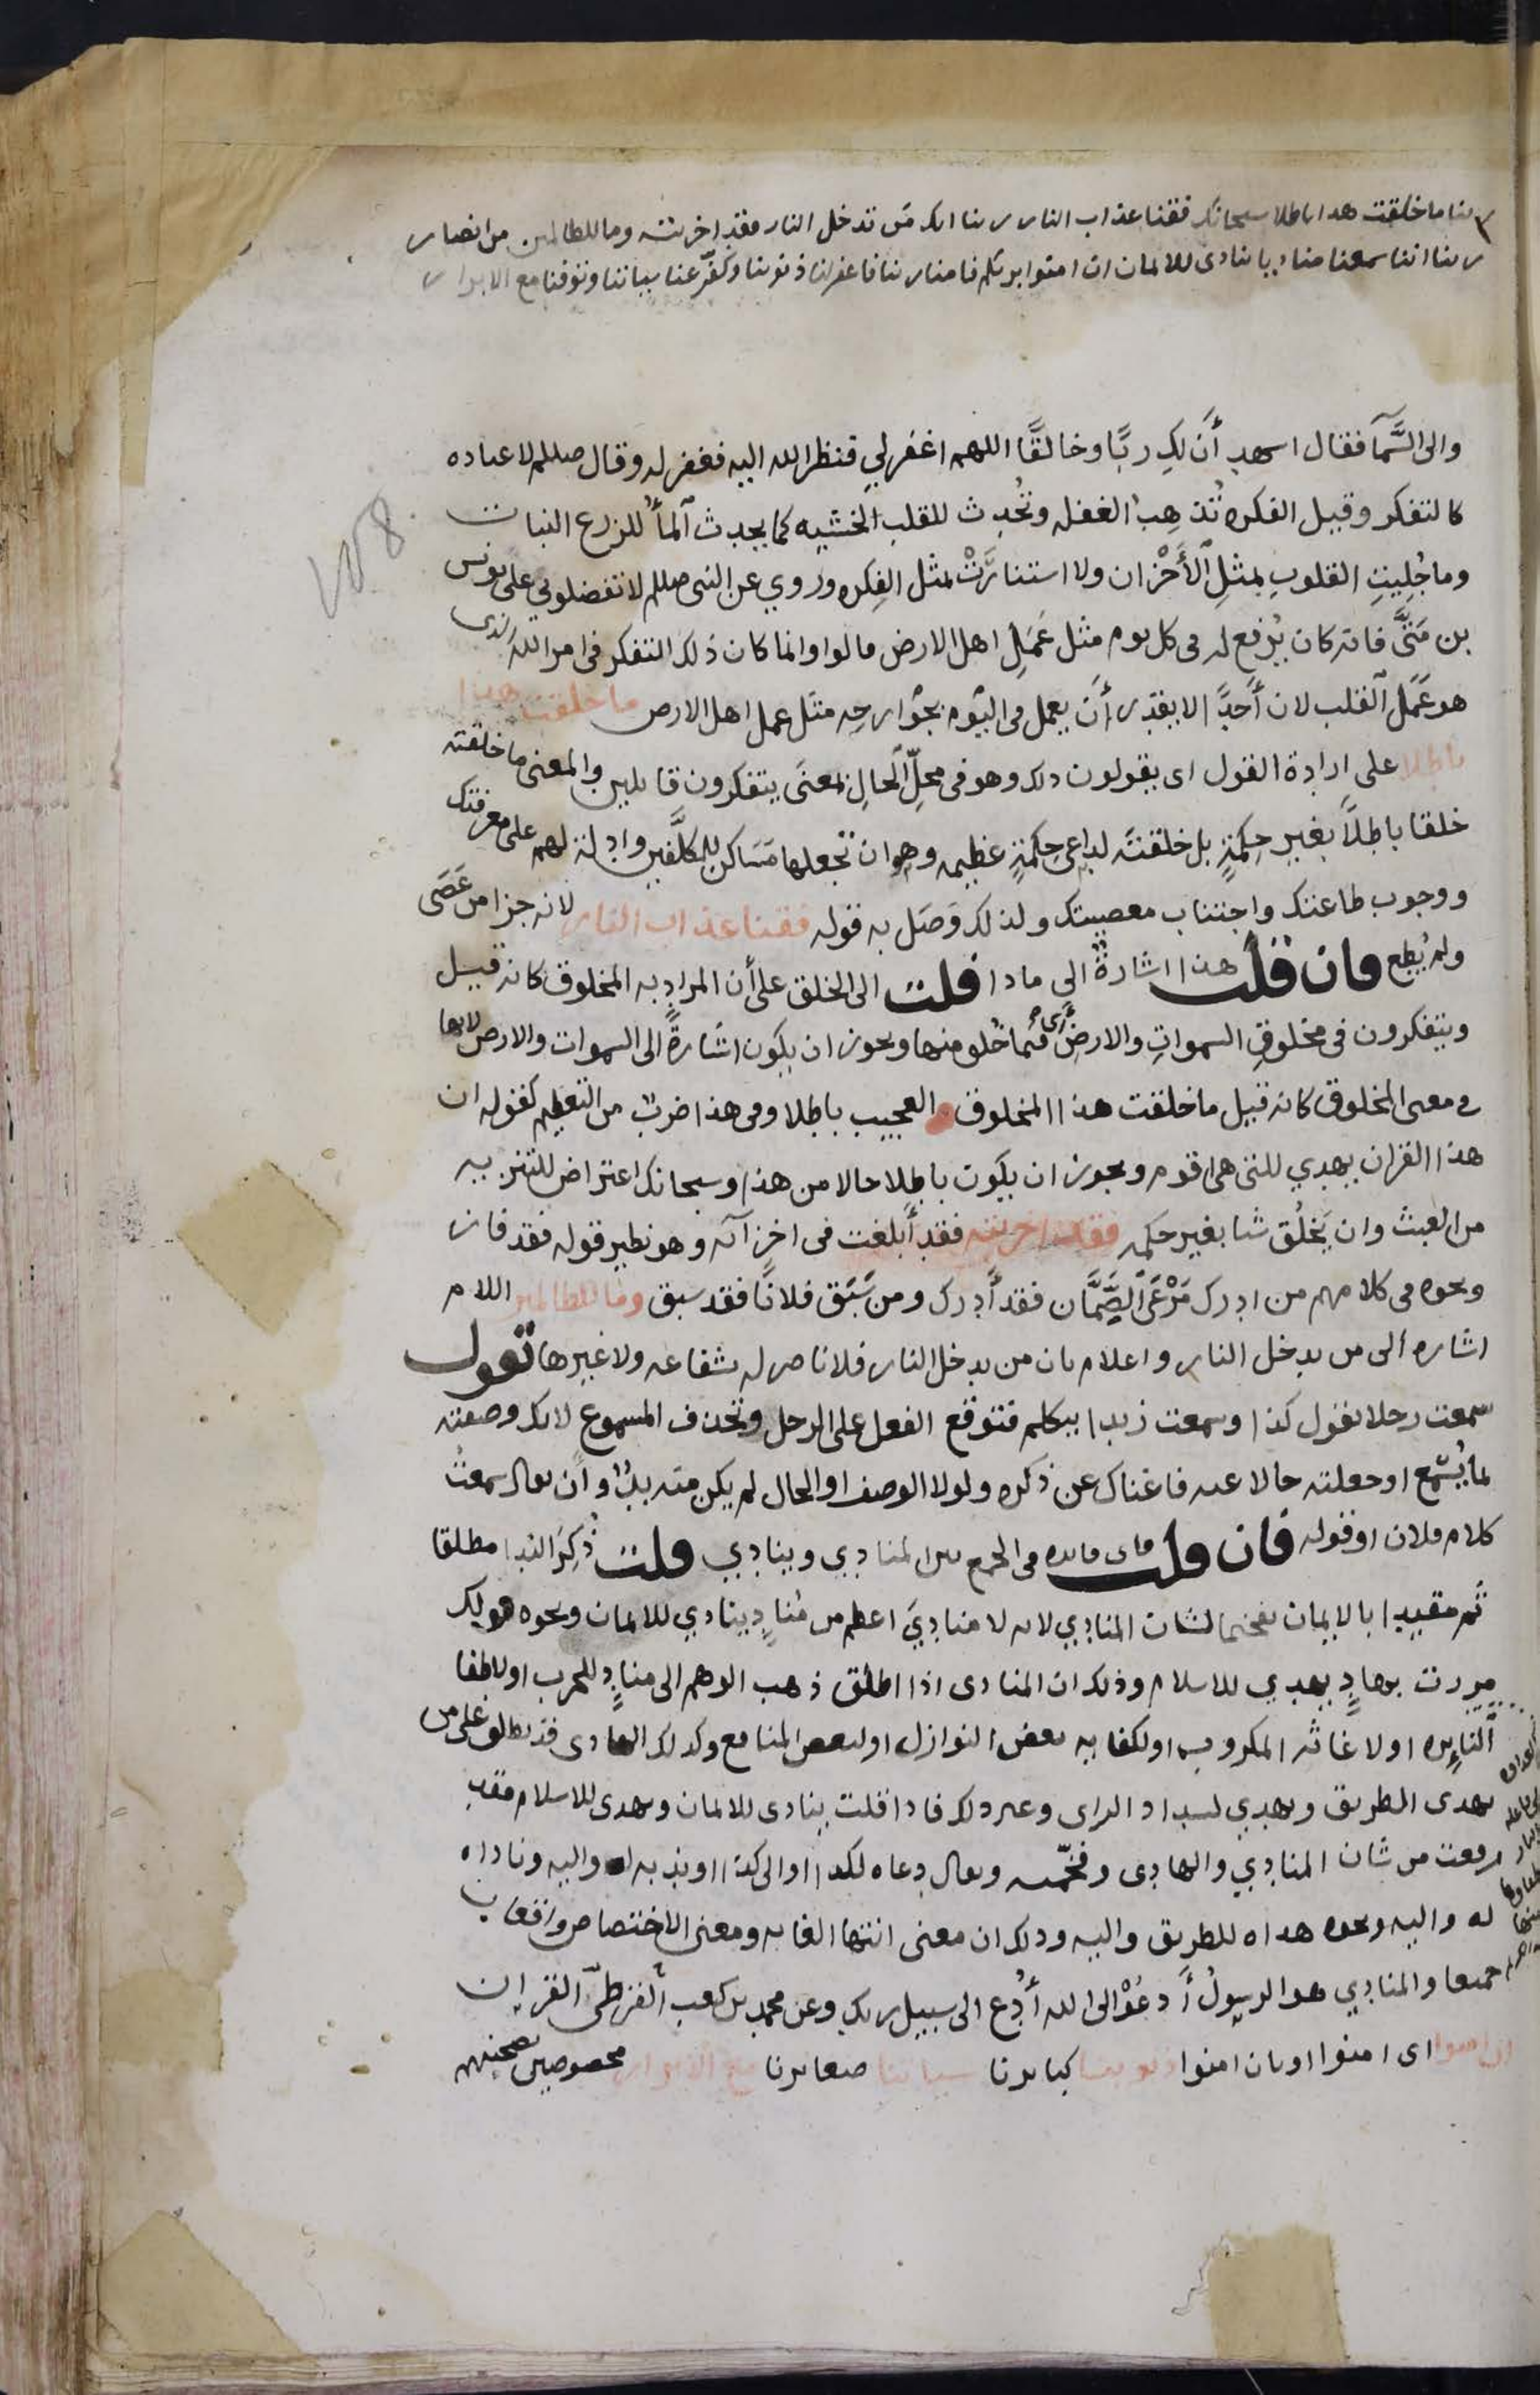 ربنا ما خلقت هدا باطلا سبحانك فقنا عذاب النار ربنا انك من تدخل النار فقد اخزيته وما للظالمين من انصار
ربنا اننا سمعنا مناديا ينادى للايمان ان امنوا بربكم فامنا ربنا فاغفر لنا ذنوبنا وكفّر عنا سياتنا وتوفنا مع الابرار
والى السَّمآ فقال اسهد أَنَ لكِ ربًّا وخالقًا اللهم اغفر لي فنظر الله اليه فغفر له وقال صللم لا عباده
كالتفكر وقيل الفكره تُذهِبُ الغفله وتُحْدِث للقلب الخشيه كما يحدث ٱلمأُ للزرع النبات
وما جُلِيَتِ القلوبِ بمثلِ ٱلأَحْزان ولا استنارَتْ بمثل الفِكره وروي عن النبى صللم لا تفضلوني على يونس
بن مَتىَّ فانه كان يُرْفع له فى كل يوم مثل عَمَلِ اهل الارض قالوا وانما كان ذلك التفكر فى امر الله الذى
هو عَمَل ٱلقلب لان أَحدًا لا يقدر أَن يعمل فى اليَوْم بجَوارحِه مثل عمل اهل الارض ما خلقت هذا
باطلا على ارادة القول اى يقولون دلك وهو فى محلِّ ٱلحالِ بمعنى يتفكرون قايلين والمعنى ما خلقته
خلقا باطلاً بغير حِكمَةٍ بل خلقتَه لداعى حِكمَةٍ عظيمه وهو ان تجعلها مَسَاكن للمكلَّفين وادلة لهم على معرفتك
ووجوب طاعتك واجتناب معصيتك ولذلك وَصَل به قوله فقنا عذاب النار لانه جزا من عَصَى
ولم يُطِع فان قلت هذا اشارةٌ الى مادا قلت الى الخلق على أن المراد به المخلوق كانه قيل
ويتفكرون فى مخلوقِ السمواتِ والارضِ أى فيما خُلق منها ويحوز ان يكون اشارةً الى السموات والارض لانها
فى معنى المخلوق كانه قيل ما خلقت هذا المخلوق العجيب باطلا وفى هذا ضربٌ من التعظيم كقوله ان
هذا القران يهدي للتى هى اقوم ويحوز ان يكون باطِلا حالا من هذا وسبحانك اعتراض للتنزيه
من العبث وان يَخلُق شيا بغير حكمه فقد اخزيته فقد أَبلغت فى اخزآئه وهو نطير قوله فقد فاز
ونحوه فى كلامهم من ادرك مَرْعَى ٱلصَّمَّان فقد أَدرك ومن سَبَق فلانًا فقد سبق وما للظالمين اللام
اشاره الى من يدخل النار واعلام بان من يدخل النار فلا ناصر له بشفاعه ولا غيرها تقول
سمعت رجلا يقول كذا وسمعت زيدا يتكلم فتوقع الفعل على الرجل وتحذف المسموع لانك وصفته
بما يُسْمَع او جعلته حالا عنه فاغناك عن ذكره ولولا الوصف او الحال لم يكن منه بدٌّ وأن يقال سمعتُ
كلام فلان او قوله فان قلت فاى فايده فى الجمع بين المنادي وينادي قلت ذُكِرَ الندا مطلقا
ثُم مقيدا بالايمان تفخيما لشان المنادي لانه لا مناديَ اعظم من مُنادٍ ينادي للايمان ونحوه قولك
مررت بهادٍ يهدي للاسلام وذلك ان المنادى اذا اطلق ذهب الوهم الى منادٍ للحرب او لاطفا
ٱلنايِره او لاغاثه المكروب او لكفايه بعض النوازل او لبعض المنافع وكذلك الهادى قد يطلق على من
يهدى الطريق ويهدي لسداد الراى وعير دلك فادا قلت ينادى للايمان ويهدى للاسلام فقد
رفعت من شان المنادي والهادى وفخّمته ويقال دعاه لكذا او الى كذا وندبه له واليه وناداه
له واليه ونحوه هداه للطريق واليه ودلك ان معنى انتها الغايه ومعنى الاختصاص واقعان
جميعا والمنادي هو الرسولُ أَدعُوْ الى الله أُدْع الى سبيل ربك وعن محمد بن كعب ٱلقرظيّ القران
ان امنوا اى امنوا او بان امنوا ذنوبنا كبايرنا سياتنا صغايرنا مع الابرار مخصوصين بصحبتهم